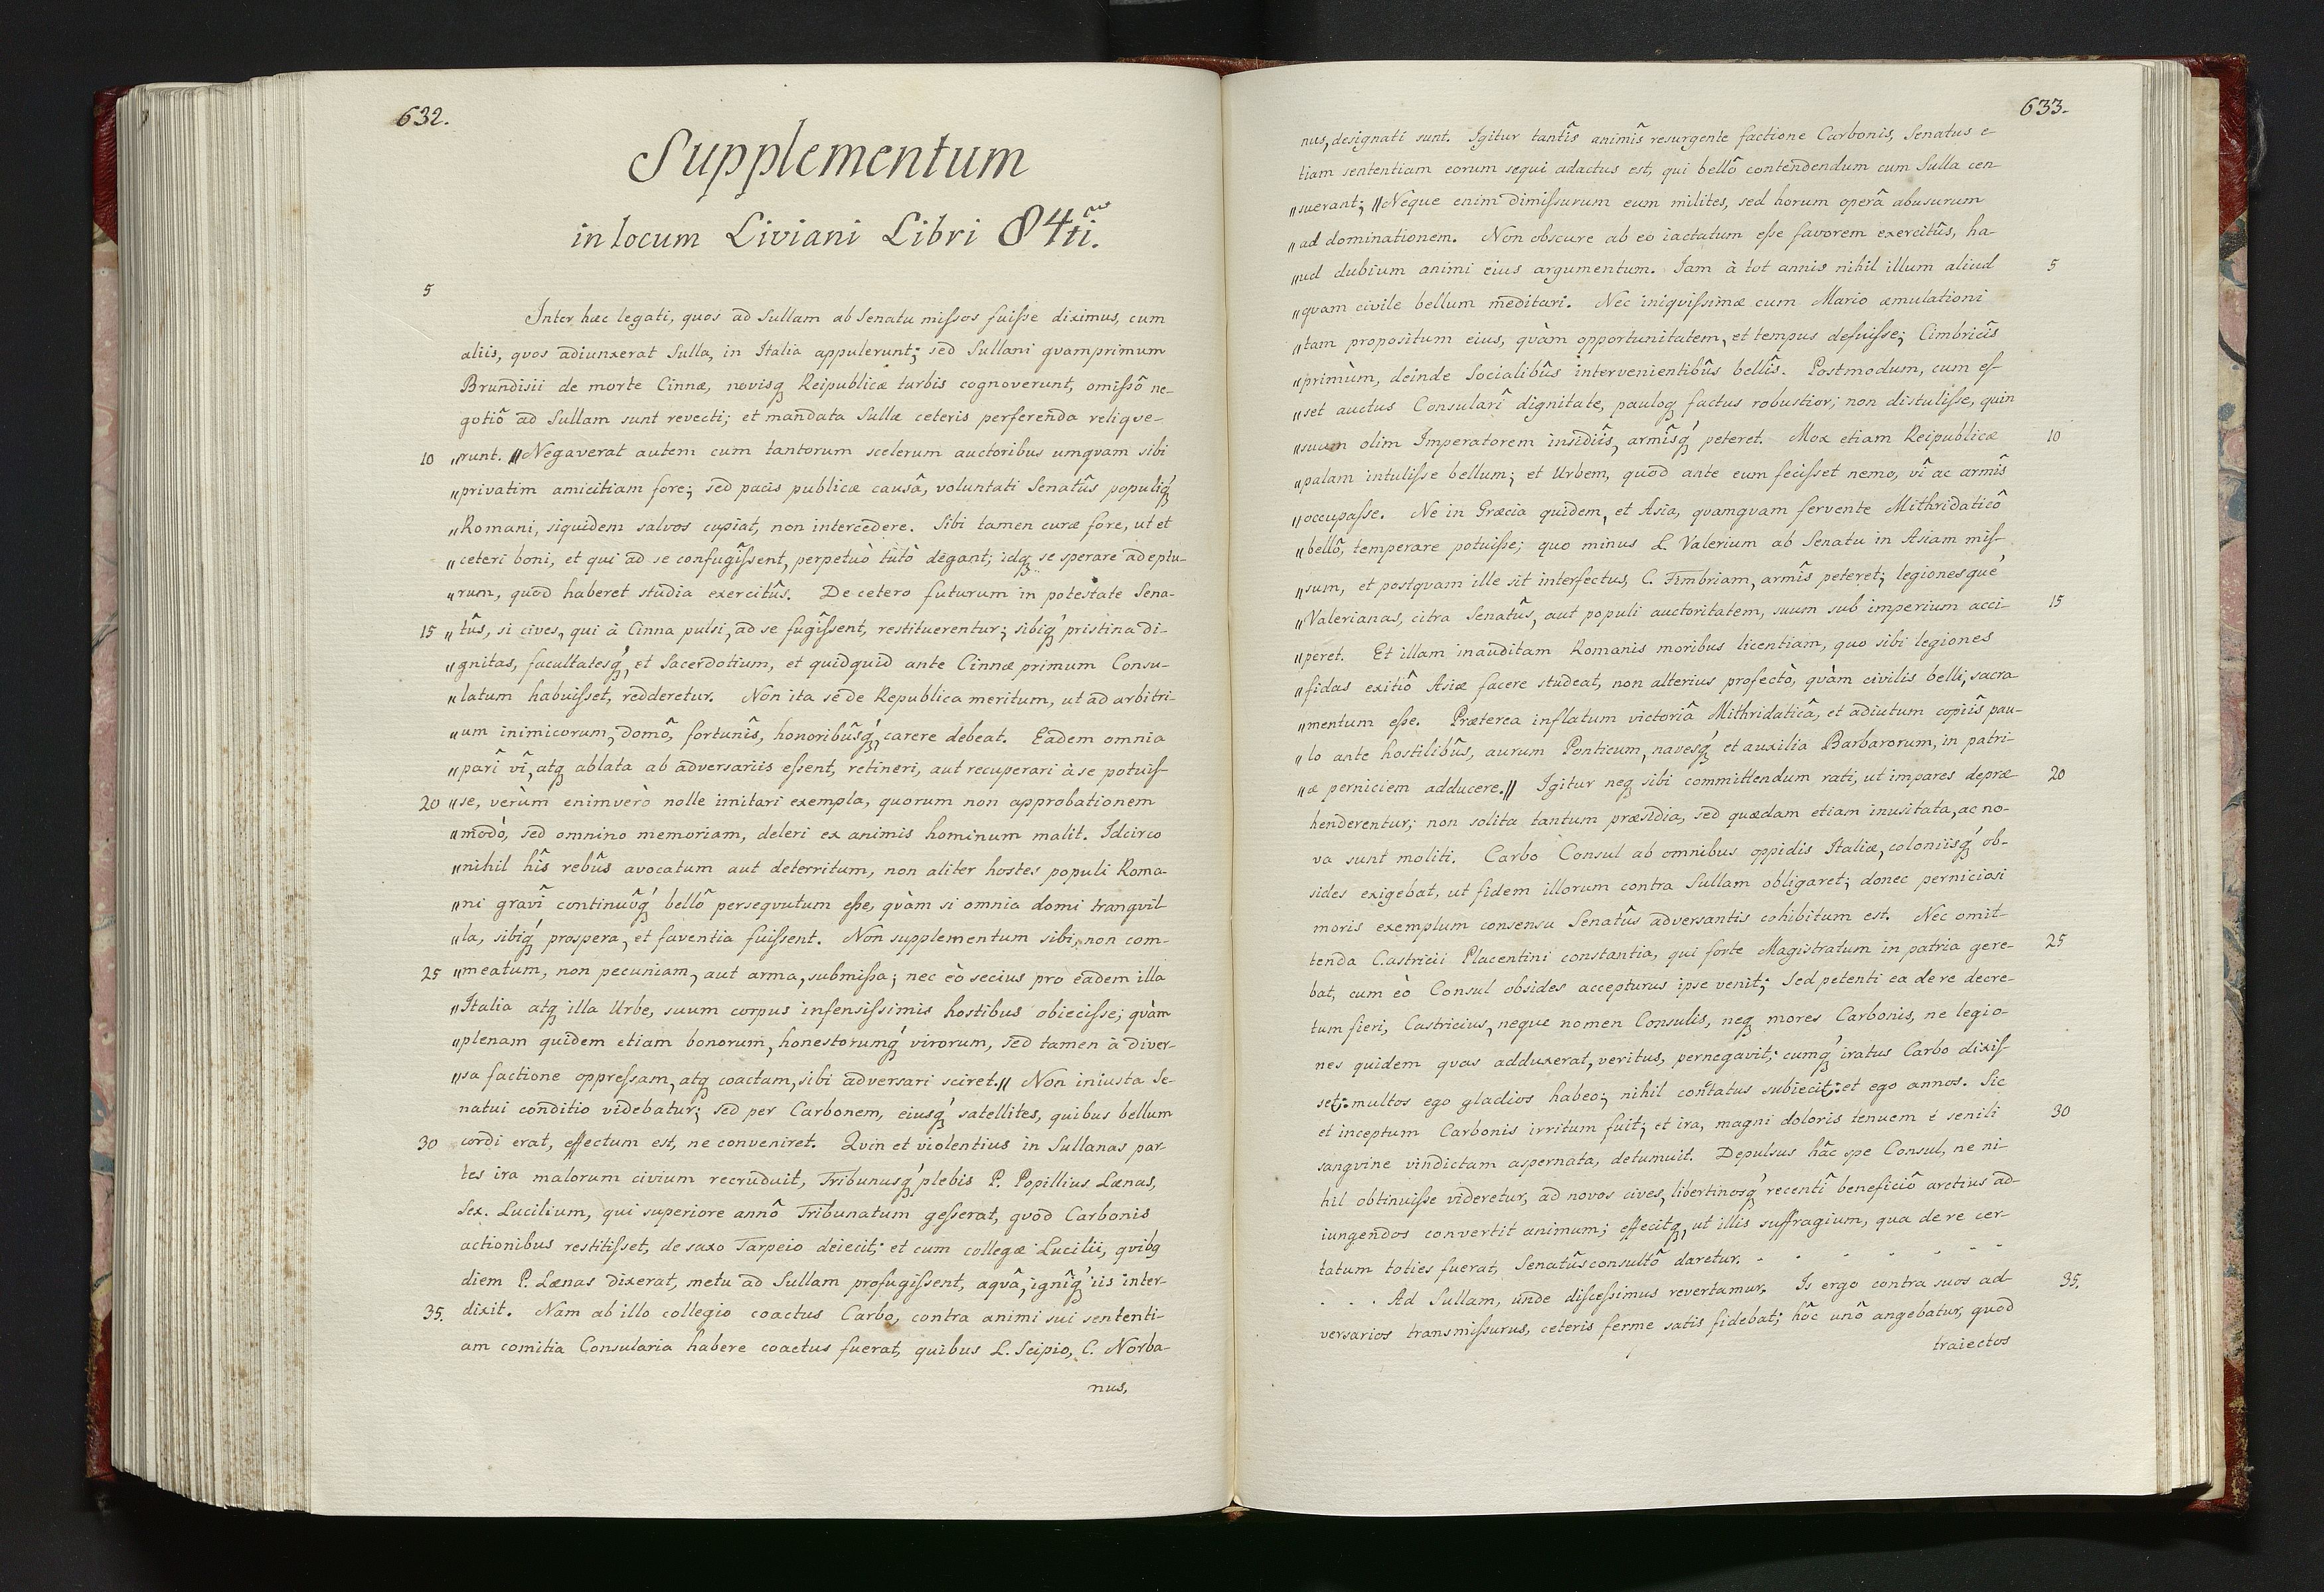 632.
Supplementum
in locum Liviani Libri 84ti.
5
Inter hæc legati, quos ad Sullam ab Senatu missos fuisse diximus, cum
aliis, qvos adiunxerat Sulla, in Italia appulerunt; sed Sullani qvamprimum
Brundisii de morte Cinnæ, novisq Reipublicæ turbis cognoverunt, omissô ne-
gotiô ad Sullam sunt revecti; et mandata Sullæ ceteris perferenda reliqve-
10 „runt. „Negaverat autem cum tantorum scelerum auctoribus umqvam sibi
„privatim amicitiam fore; sed pacis publicæ causâ, voluntati Senatûs populiq́
„Romani, siquidem salvos cupiat, non intercedere. Sibi tamen curæ fore, ut et
„ceteri boni, et qui ad se confugîssent, perpetuò tutò degant; idq se sperare adeptu-
„rum, quod haberet studia exercitûs. De cetero futurum in potestate Sena-
15 „tûs, si cives, qui à Cinna pulsi, ad se fugîssent, restituerentur; sibiq́ pristina di-
„gnitas, facultatesq́, et Sacerdotium, et quidquid ante Cinnæ primum Consu-
„latum habuisset, redderetur. Non ita se de Republica meritum, ut ad arbitri-
„um inimicorum, domô, fortunîs, honoribûsq́, carere debeat. Eadem omnia
„parî vî, atq ablata ab adversariis essent, retineri, aut recuperari à se potuis-
20 „se, verùm enimverò nolle imitari exempla, quorum non approbationem
„modò, sed omnino memoriam, deleri ex animis hominum malit. Idcirco
„nihil hîs rebûs avocatum aut deterritum, non aliter hostes populi Roma-
„ni gravî continuôq́ bellô persequutum esse, qvàm si omnia domi tranqvil
„la, sibiq́ prospera, et faventia fuissent. Non supplementum sibi, non com-
25 „meatum, non pecuniam, aut arma, submissa; nec eò secius pro eadem illa
„Italia atq illa Urbe, suum corpus infensissimis hostibus obiecisse; qvàm
„plenam quidem etiam bonorum, honestorumq́ virorum, sed tamen à diver-
„sa factione oppressam, atq coactam, sibi adversari sciret.„ Non iniusta Se-
natui conditio videbatur; sed per Carbonem, eiusq́ satellites, quibus bellum
30 cordi erat, effectum est, ne conveniret. Qvin et violentius in Sullanas par-
tes ira malorum civium recruduit, Tribunusq́ plebis P. Popillius Lænas,
Sex. Lucilium, qui superiore annô Tribunatum gesserat, qvod Carbonis
actionibus restitisset, de saxo Tarpeio deiecit; et cum collegæ Lucilii, qvibq
diem P. Lænas dixerat, metu ad Sullam profugissent, aqvâ, ignîq́ iis inter-
35. dixit. Nam ab illo collegio coactus Carbo, contra animi sui sententi-
am comitia Consularia habere coactus fuerat, quibus L. Scipio, C. Norba-
nus,
633.
nus, designati sunt. Igitur tantîs animîs resurgente factione Carbonis, Senatus e-
tiam sententiam eorum sequi adactus est, qui bellô contendendum cum Sulla cen-
„suerant; „Neque enim dimissurum eum milites, sed horum operâ abusurum
„ad dominationem. Non obscure ab eo iactatum esse favorem exercitûs, ha-
„ud dubium animi eius argumentum. Iam à tot annis nihil illum aliud 5
„qvam civile bellum meditari. Nec iniqvissimæ cum Mario æmulationi
„tam propositum eius, qvàm opportunitatem, et tempus defuisse; Cimbricîs
„primùm, deinde Socialibûs intervenientibûs bellîs. Postmodum, cum es-
„set auctus Consularî dignitate, pauloq factus robustior; non distulisse, quin
„suum olim Imperatorem insidiîs, armîsq́ peteret. Mox etiam Reipublicæ 10
„palam intulisse bellum; et Urbem, quod ante eum fecisset nemo, vî ac armîs
„occupasse. Ne in Græcia quidem, et Asia, qvamqvam fervente Mithridaticô
„bellô, temperare potuisse; quo minus L. Valerium ab Senatu in Asiam mis-
„sum, et postqvam ille sit interfectus, C. Fimbriam, armîs peteret; legionesqué
„Valerianas, citra Senatûs, aut populi auctoritatem, suum sub imperium acci- 15
„peret. Et illam inauditam Romanis moribus licentiam, quo sibi legiones
„fidas exitiô Asiæ facere studeat, non alterius profectò, qvàm civilis belli, sacra-
„mentum esse. Præterea inflatum victoriâ Mithridaticâ, et adiutum copiîs pau-
„lo ante hostilibûs, aurum Ponticum, navesq́ et auxilia Barbarorum, in patri-
„æ perniciem adducere.„ Igitur neq sibi committendum rati, ut impares depræ- 20
henderentur; non solita tantum præsidia, sed quædam etiam inusitata, ac no-
va sunt moliti. Carbo Consul ab omnibus oppidis Italiæ, coloniisq́ ob-
sides exigebat, ut fidem illorum contra Sullam obligaret; donec perniciosi
moris exemplum consensu Senatûs adversantis cohibitum est. Nec omit-
tenda Castricii Placentini constantia, qui forte Magistratum in patria gere- 25
bat, cum eò Consul obsides accepturus ipse venit; Sed petenti ea de re decre-
tum fieri, Castricius, neque nomen Consulis, neq mores Carbonis, ne legio-
nes quidem qvas adduxerat, veritus, pernegavit; cumq́ iratus Carbo dixis-
set: multos ego gladios habeo; nihil contatus subiecit: et ego annos. Sic
et inceptum Carbonis irritum fuit; et ira, magni doloris tenuem é senili 30
sangvine vindictam aspernata, detumuit. Depulsus hâc spe Consul, ne ni-
hil obtinuisse videretur, ad novos cives, libertinosq́ recentî beneficiô arctius ad-
iungendos convertit animum; effecitq, ut illis suffragium, qua de re cer-
tatum toties fuerat, Senatûsconsultô daretur. - - - - - - -
. . . Ad Sullam, unde discessimus revertamur. Is ergo contra suos ad- 35.
versarios transmissurus, ceteris ferme satis fidebat; hôc unô angebatur, quod
traiectos